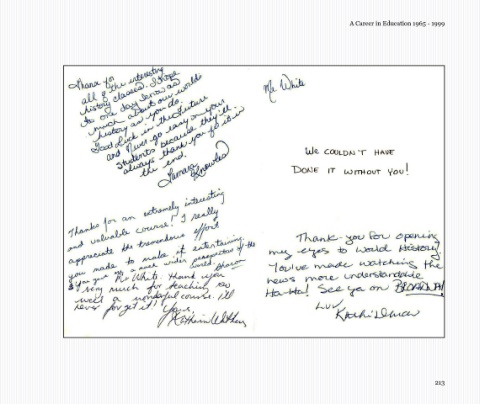 A Career in Education 1965 - 1999
Thank you
all of the interesting
history classes. I hope
to one day know as
much about our worlds
history as you do.
Good Luck in the future
and never go easy on your
students because they'll
always thank you for it in
the end.
Tamara
Knowles
Mr. White
We couldn't have
done it without you!
Thanks for an extremely interesting
and valuable course! I really
appreciate the tremendous effort
you made to make it entertaining.
you gave us a much wider perspective of the
Mr White. Thank you
very much for teaching us
such a wonderful course. I'll
never forget it!
Yours,
Thank you for opening
my eyes to World History
You've made watching the
news more understandable
Ha-Ha! See ya on
Luv
213